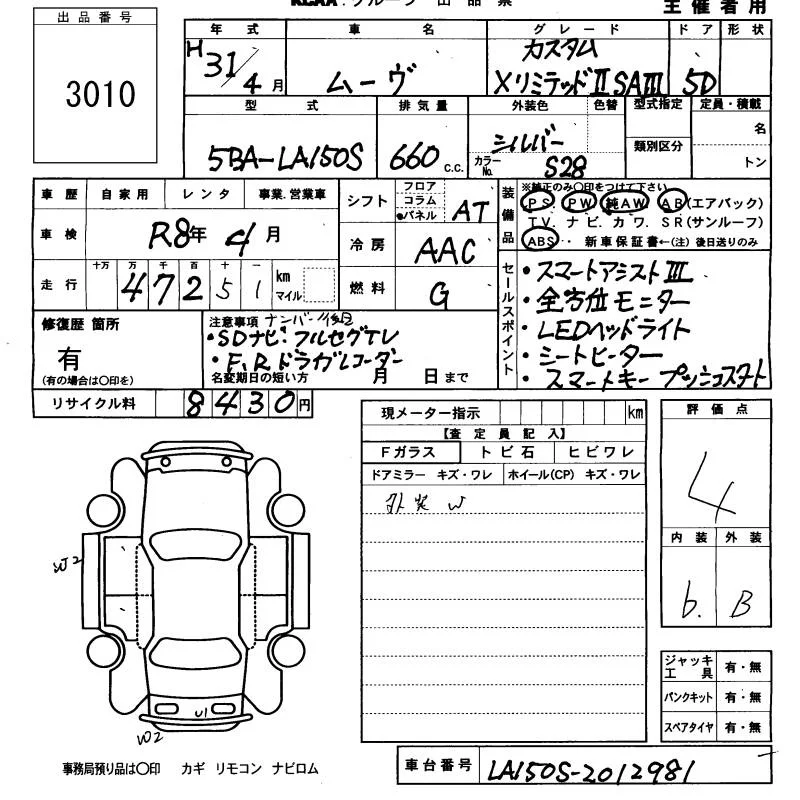 KCAA・グループ 出品票 主催者用
出品番号
3010
年式 車名 グレード ドア 形状
H31/4月 ムーヴ カスタム
XリミテッドⅡSAⅢ 5D
型式 排気量 外装色 色替 型式指定 定員・積載
5BA-LA150S 660 c.c. シルバー 類別区分 名
カラーNo. S28 トン
車歴 自家用 レンタ 事業.営業車
車検 R8年4月
走行 十万 万 千 百 十 一
47251 km マイル
シフト フロア コラム ●パネル AT
冷房 AAC
燃料 G
装備品
※純正のみ〇印をつけて下さい
PS PW 純AW AB(エアバック)
TV. ナビ. カワ. SR(サンルーフ)
ABS・・新車保証書←(注)後日送りのみ
セールスポイント
・スマートアシストⅢ
・全方位モニター
・LEDヘッドライト
・シートヒーター
・スマートキー プッシュスタート
修復歴 箇所
有
(有の場合は〇印を)
注意事項 ナンバー
・SDナビ・フルセグTV
・F,Rドラカレコーダー
名変期日の短い方 月 日まで
リサイクル料 8430円
現メーター指示 km
【査定員記入】
Fガラス トビ石 ヒビワレ
ドアミラー キズ・ワレ ホイール(CP) キズ・ワレ
外装 W
評価点
4
内装 外装
b. B
W2
U1
W2
ジャッキ工具 有・無
パンクキット 有・無
スペアタイヤ 有・無
事務局預り品は〇印 カギ リモコン ナビロム
車台番号 LA150S-2012981